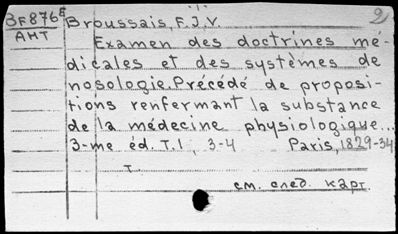 3F876 E Broussais, F.J.V. 2
АНТ Examen des doctrines mé-
dicales et des systèmes de
nosologie. Précédé de proposi-
tions renfermant la substance
de la médecine physiologique...
3-me éd. T.1, 3-4 Paris, 1829-34
т.
см. след. карт.